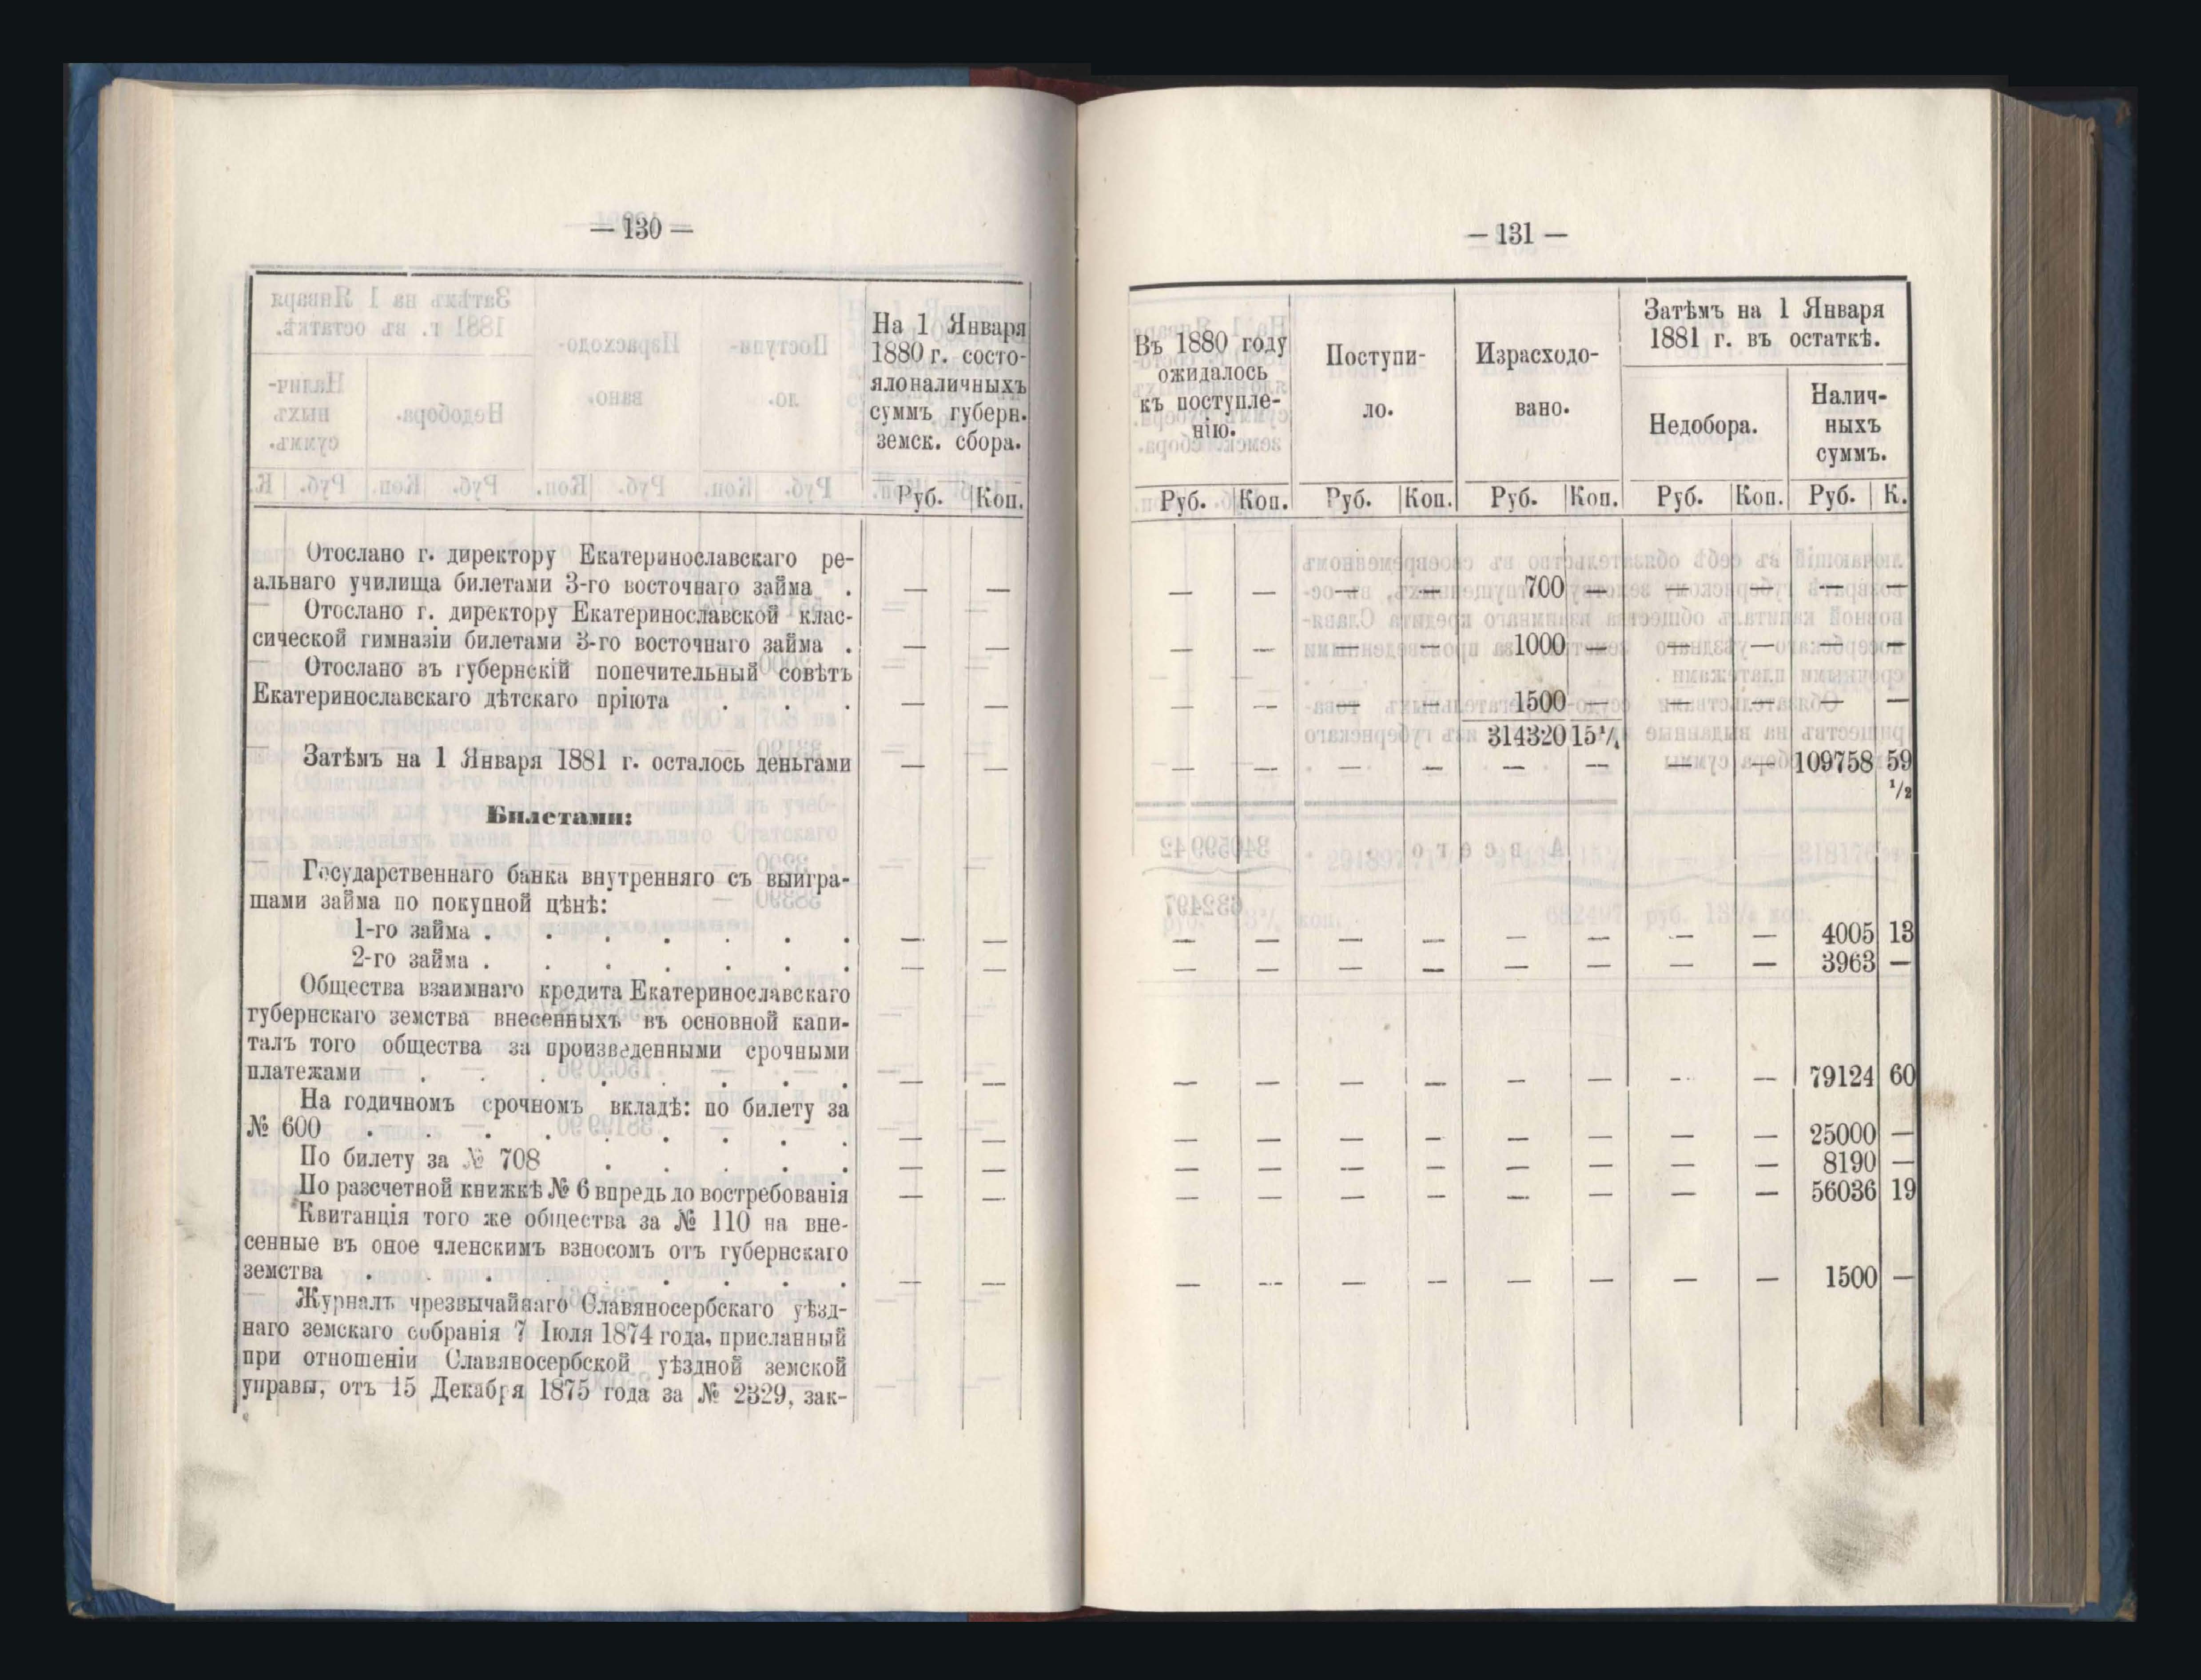 — 130 —
На 1 Января
1880 г. состо-
яло наличныхъ
суммъ губерн.
земск. сбора.
Руб. Коп.
Отослано г. директору Екатеринославскаго ре-
альнаго училища билетами 3-го восточнаго займа . — —
Отослано г. директору Екатеринославской клас-
сической гимназіи билетами 3-го восточнаго займа . — —
Отослано въ губернскій попечительный совѣтъ
Екатеринославскаго дѣтскаго пріюта . . . — —
Затѣмъ на 1 Января 1881 г. осталось деньгами — —
Билетами:
Государственнаго банка внутренняго съ выигра-
шами займа по покупной цѣнѣ:
1-го займа . . . . . . . — —
2-го займа . . . . . . . — —
Общества взаимнаго кредита Екатеринославскаго
губернскаго земства внесенныхъ въ основной капи-
талъ того общества за произведенными срочными
платежами . . . . . . . . — —
На годичномъ срочномъ вкладѣ: по билету за
№ 600 . . . . . . . . . — —
По билету за № 708 . . . . . — —
По разсчетной книжкѣ № 6 впредь до востребованія — —
Квитанція того же общества за № 110 на вне-
сенные въ оное членскимъ взносомъ отъ губернскаго
земства . . . . . . . . . — —
Журналъ чрезвычайнаго Славяносербскаго уѣзд-
наго земскаго собранія 7 Іюля 1874 года, присланный
при отношеніи Славяносербской уѣздной земской
управы, отъ 15 Декабря 1875 года за № 2329, зак-
— 131 —
Въ 1880 году
ожидалось
къ поступле-
нію.
Поступи-
ло.
Израсходо-
вано.
Затѣмъ на 1 Января
1881 г. въ остаткѣ.
Недобора.
Налич-
ныхъ
суммъ.
Руб. Коп. Руб. Коп. Руб. Коп. Руб. Коп. Руб. К.
— — — — 700 — — — — —
— — — — 1000 — — — — —
— — — — 1500 — — — — —
314320 15¼
— — — — — — — — 109758 59
½
— — — — — — — — 4005 13
— — — — — — — — 3963 —
— — — — — — — — 79124 60
— — — — — — — — 25000 —
— — — — — — — — 8190 —
— — — — — — — — 56036 19
— — — — — — — — 1500 —